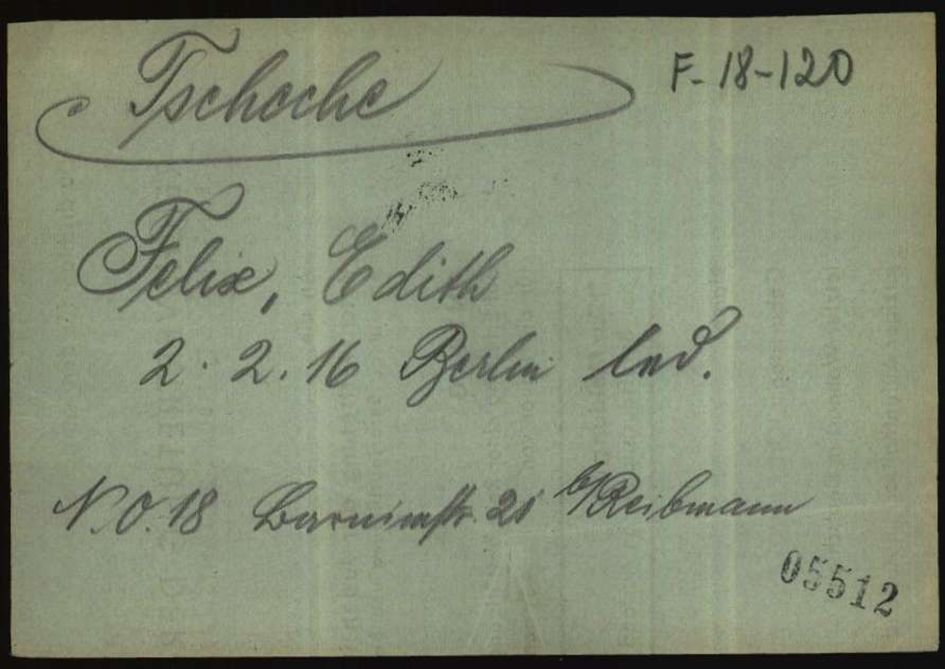 Tscheche
F-18-120
Felix, Edith
2. 2. 16 Berlin led.
N.O. 18 Barnimstr. 21 b/Reibmann
05512